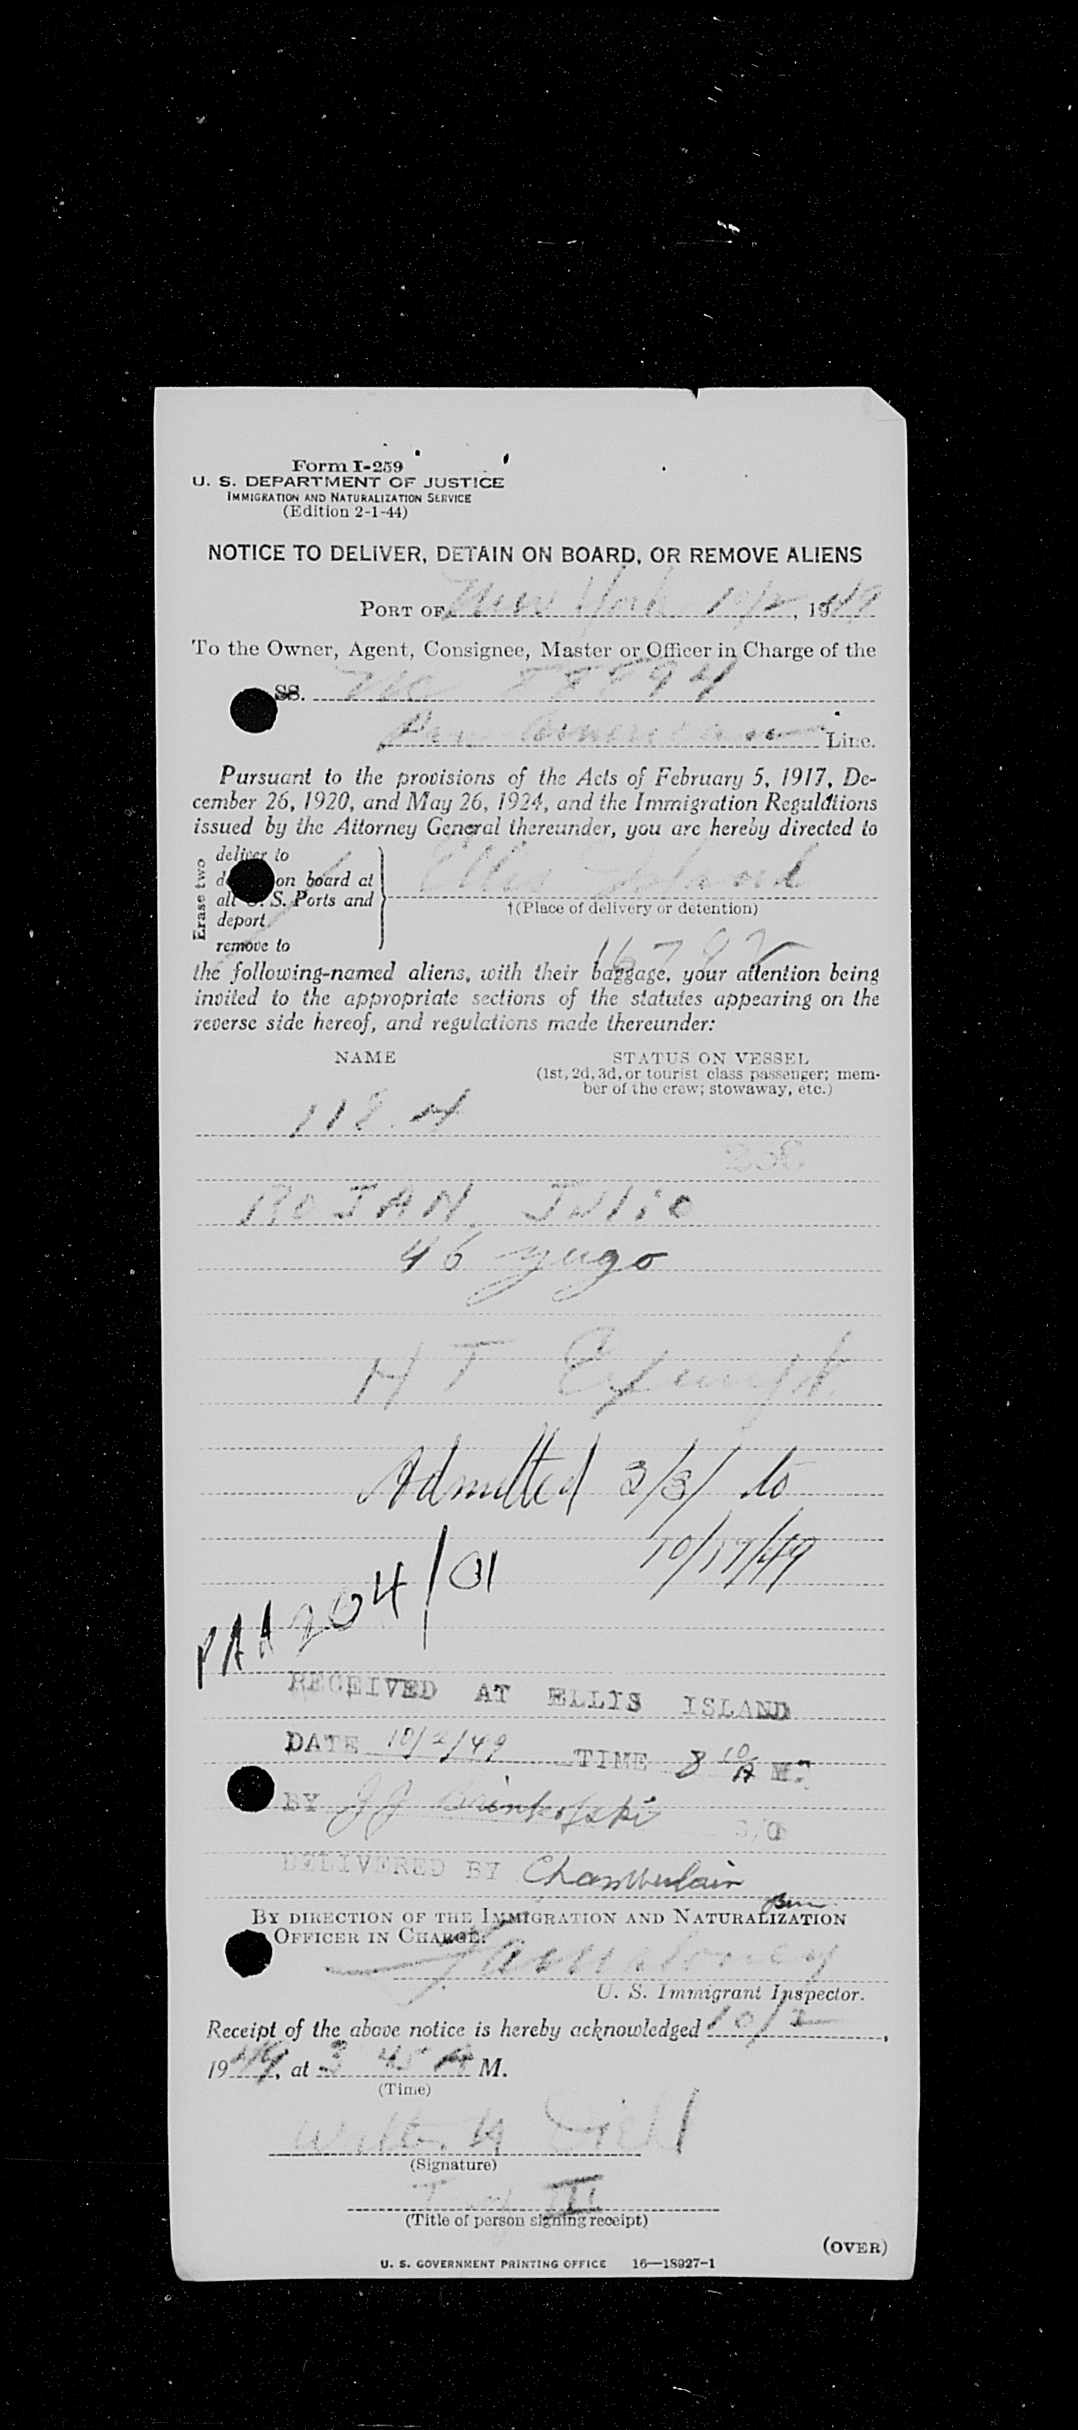 Form I-259
U. S. DEPARTMENT OF JUSTICE
IMMIGRATION AND NATURALIZATION SERVICE
(Edition 2-1-44)
NOTICE TO DELIVER, DETAIN ON BOARD, OR REMOVE ALIENS
PORT OF New York 10/2, 1949
To the Owner, Agent, Consignee, Master or Officer in Charge of the
SS. NC 88894
Pan American Line.
Pursuant to the provisions of the Acts of February 5, 1917, De-
cember 26, 1920, and May 26, 1924, and the Immigration Regulations
issued by the Attorney General thereunder, you are hereby directed to
Erase two
deliver to
on board at
all S. Ports and
deport
remove to
Ellis Island
†(Place of delivery or detention)
16792
the following-named aliens, with their baggage, your attention being
invited to the appropriate sections of the statutes appearing on the
reverse side hereof, and regulations made thereunder:
NAME
STATUS ON VESSEL
(1st, 2d, 3d, or tourist class passenger; mem-
ber of the crew; stowaway, etc.)
118.4
ROJAN, Julio
46 yugo
HT Exempt
Admitted 3/3/ to
10/17/49
PAA 204/01
RECEIVED AT ELLIS ISLAND
DATE 10/2/49 TIME 8 10 A M.
BY JJ
DELIVERED BY Chamberlain
BY DIRECTION OF THE IMMIGRATION AND NATURALIZATION
OFFICER IN CHARGE:
U. S. Immigrant Inspector.
Receipt of the above notice is hereby acknowledged 10/2,
1949, at 3 45 A M.
(Time)
Diehl
(Signature)
III
(Title of person signing receipt)
(OVER)
U. S. GOVERNMENT PRINTING OFFICE 16—18927-1